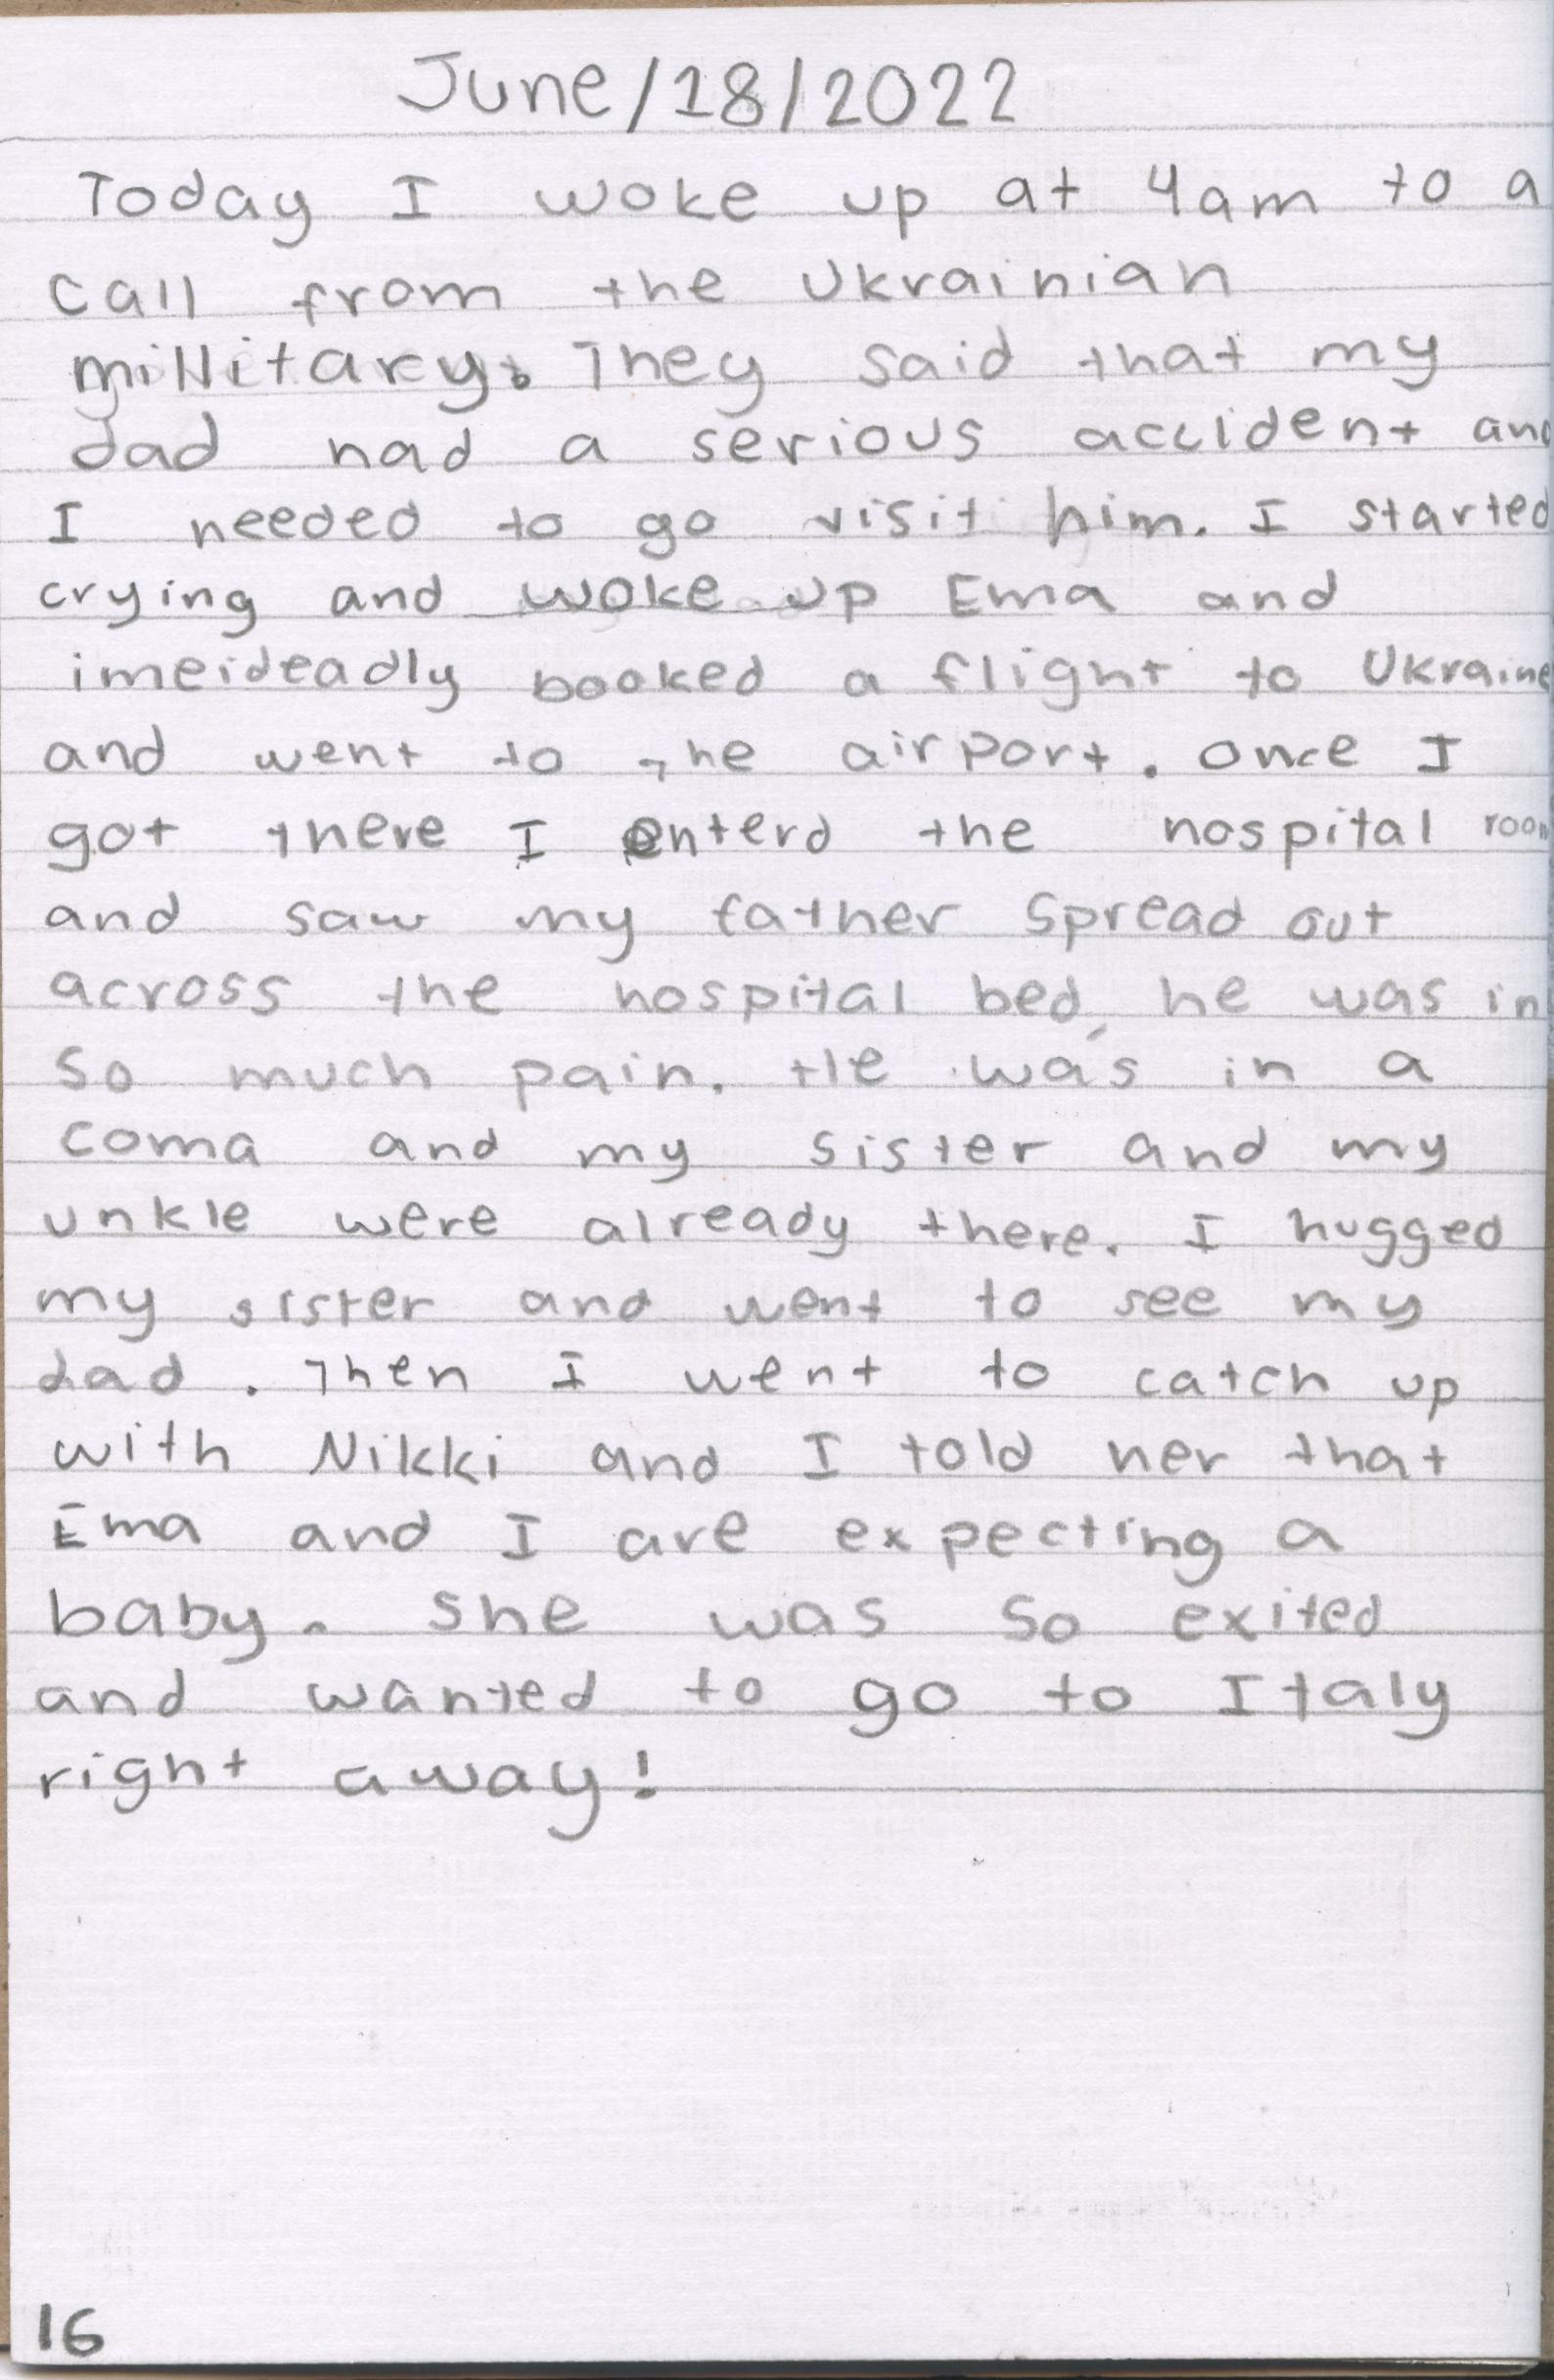 June/18/2022
Today I woke up at 4am to a
call from the Ukrainian
millitary. They said that my
dad had a serious accident and
I needed to go visit him. I started
crying and woke up Ema and
imeideadly booked a flight to Ukraine
and went to the airport. Once I
got there I enterd the hospital room
and saw my father spread out
across the hospital bed, he was in
so much pain. He was in a
coma and my sister and my
unkle were already there. I hugged
my sister and went to see my
dad. Then I went to catch up
with Nikki and I told her that
Ema and I are expecting a
baby. She was so exited
and wanted to go to Italy
right away!
16